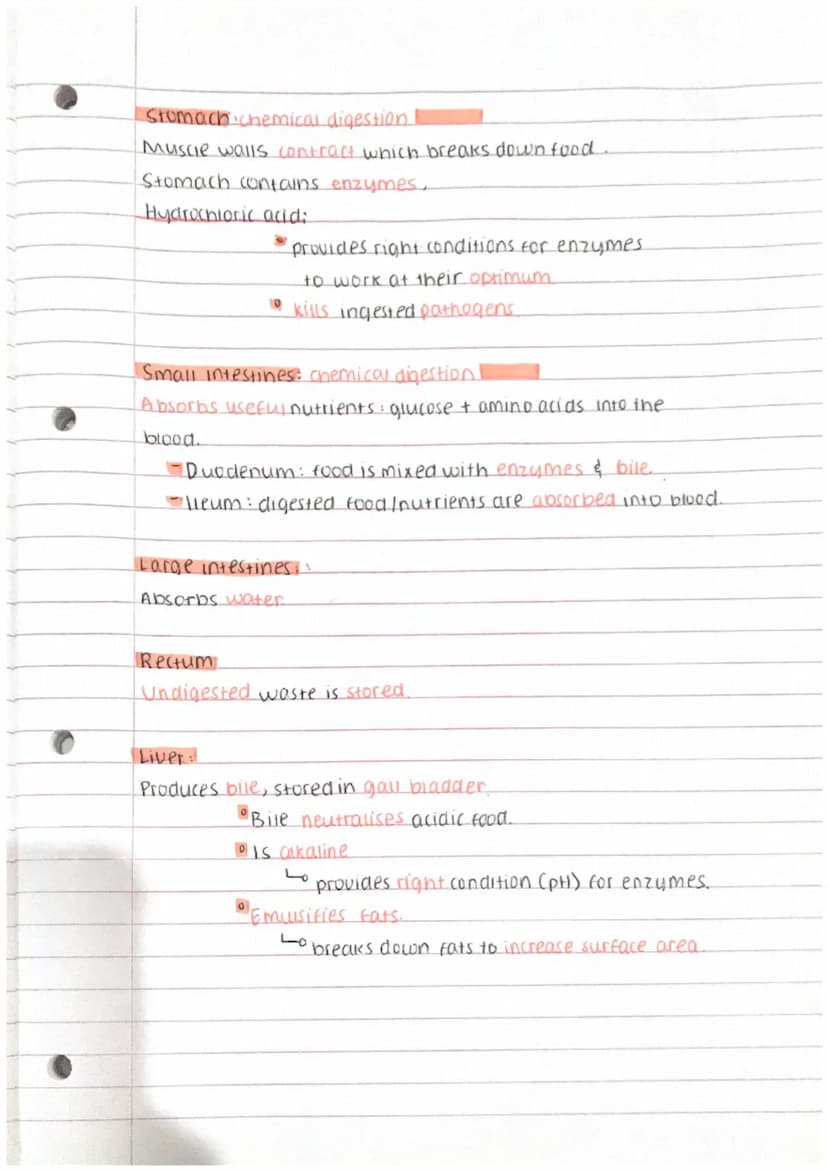 Stomach: chemical digestion
Muscle walls contract which breaks down food.
Stomach contains enzymes.
Hydrochloric acid:
• provides right conditions for enzymes
to work at their optimum
• kills ingested pathogens.
Small intestines: chemical digestion
Absorbs useful nutrients: glucose + amino acids into the
blood.
- Duodenum: food is mixed with enzymes & bile.
- Ileum: digested food/nutrients are absorbed into blood.
Large intestines:
Absorbs water.
Rectum
Undigested waste is stored.
Liver:
Produces bile, stored in gall bladder.
• Bile neutralises acidic food.
• Is alkaline
↳ provides right condition (pH) for enzymes.
• Emulsifies fats.
↳ breaks down fats to increase surface area.